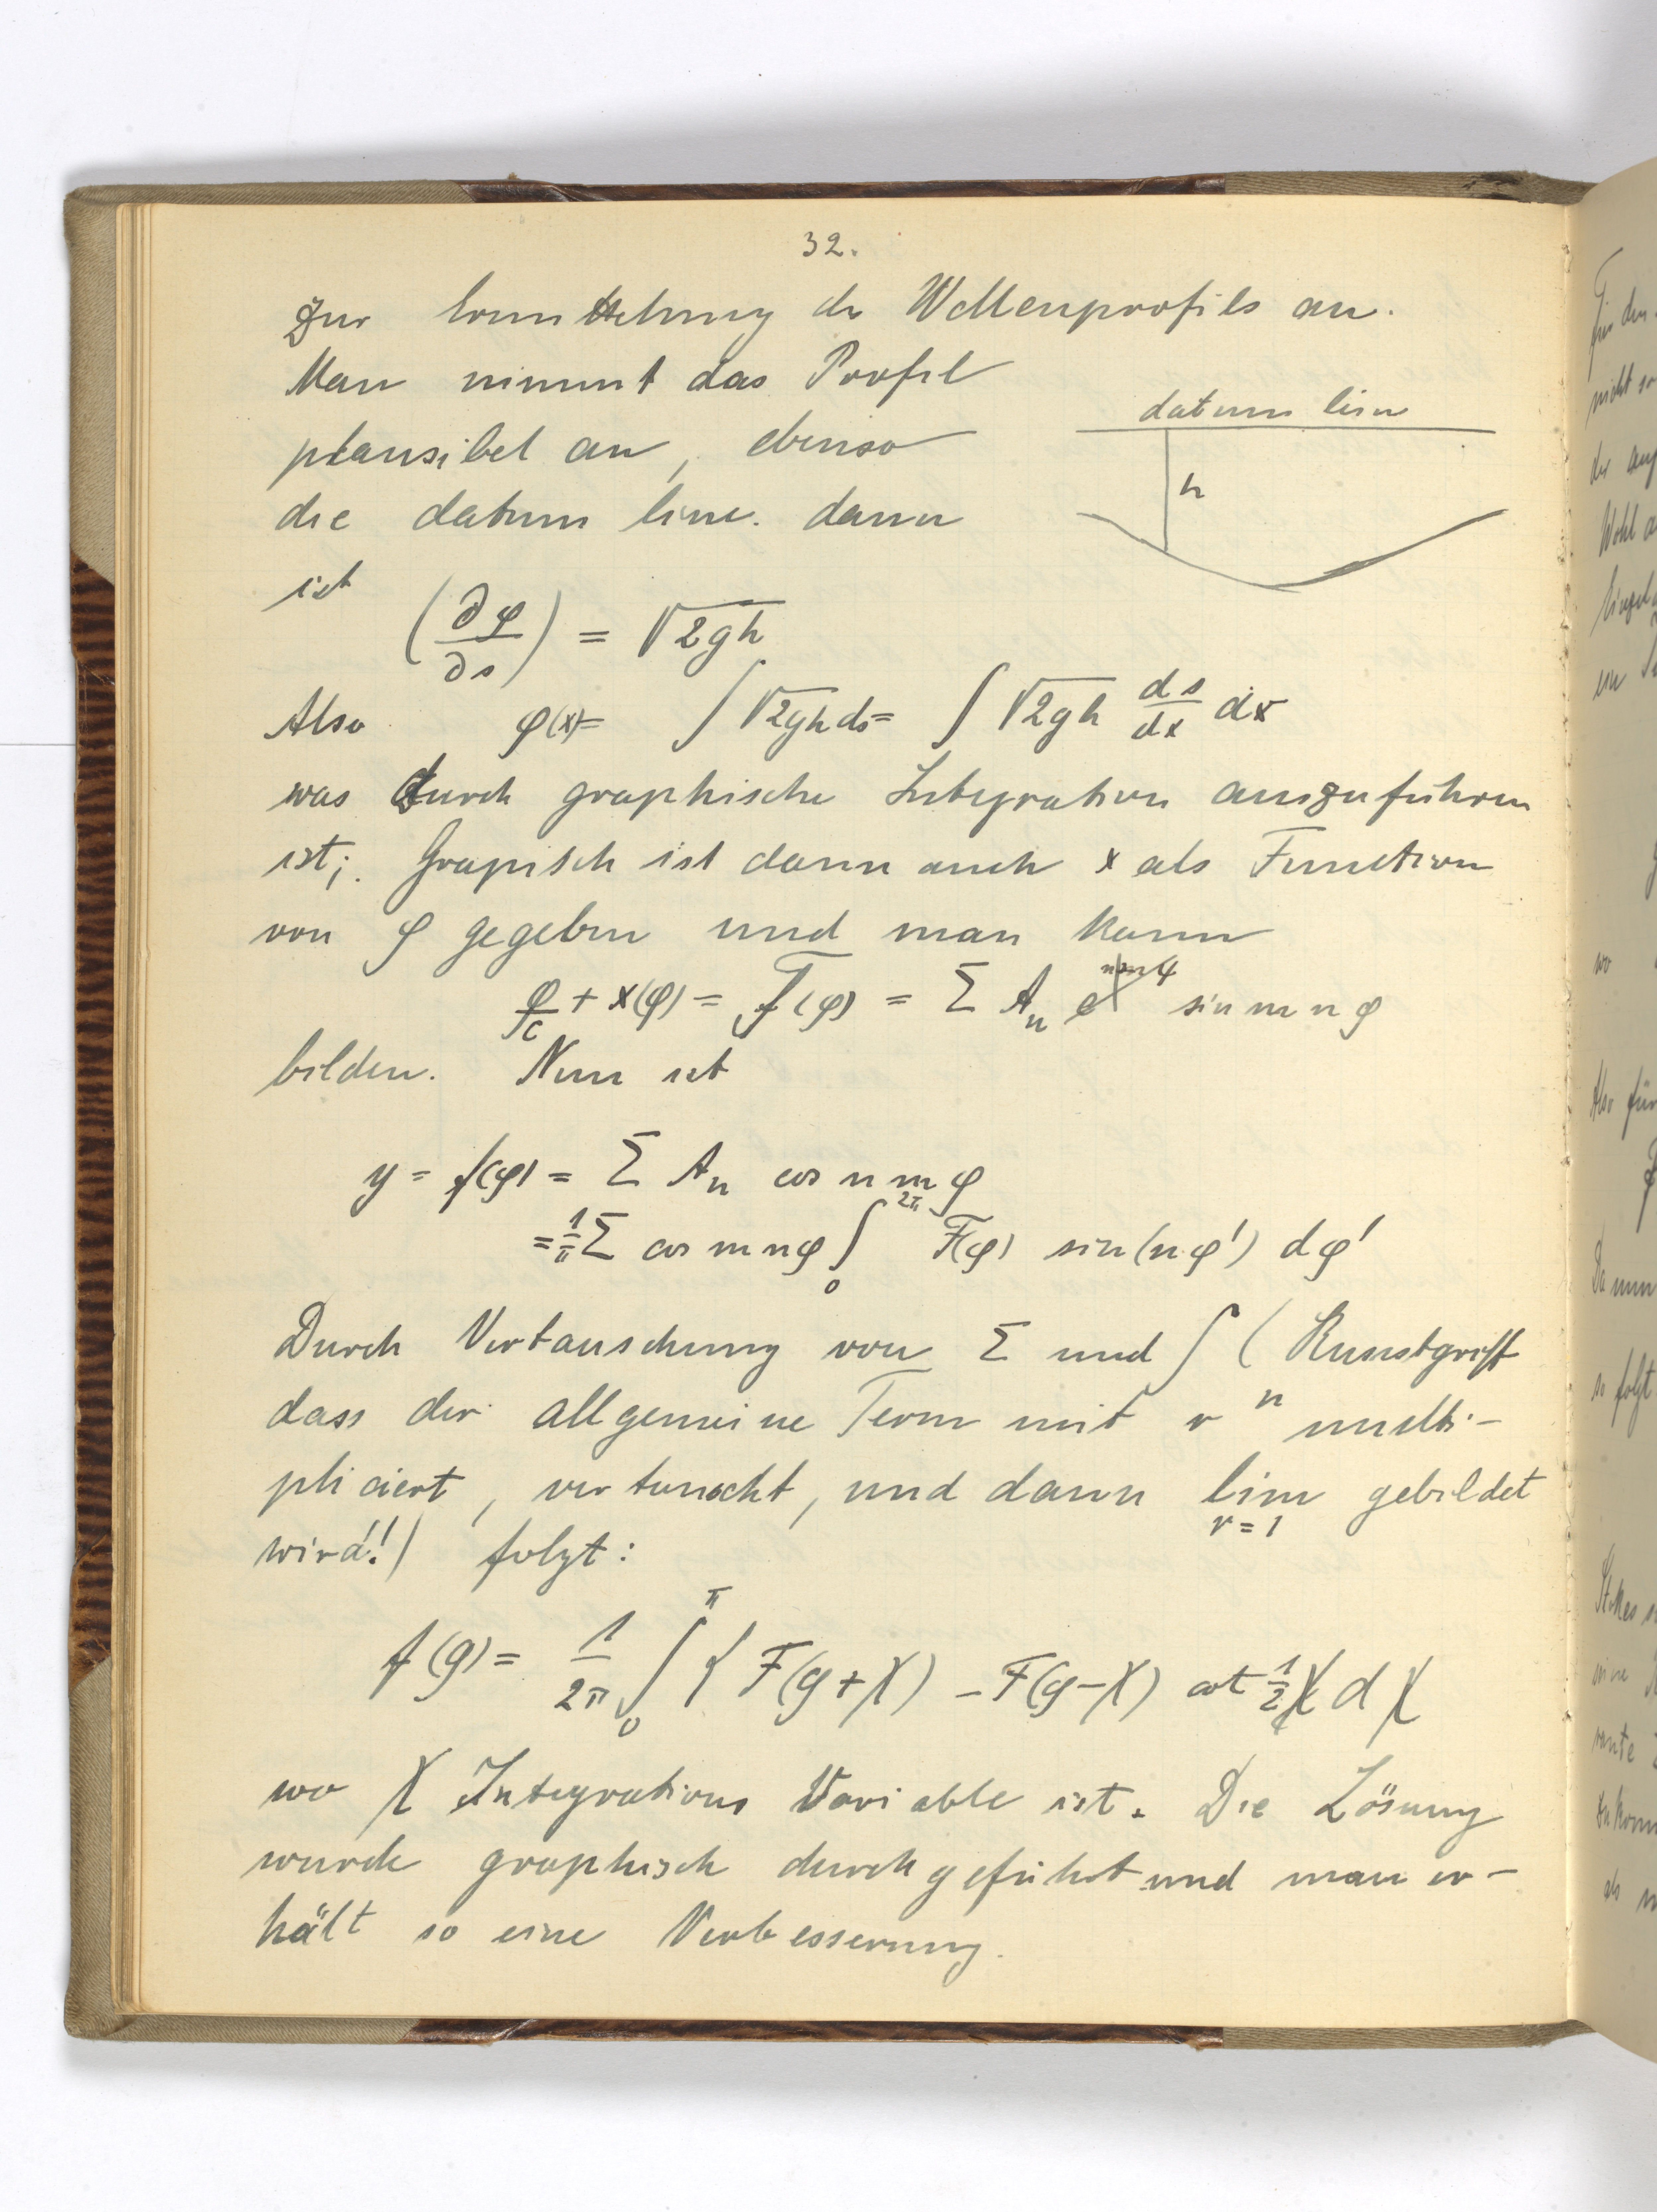 32.
zur Ermittelung des Wellenprofils an.
Man nimmt das Profil
plausibel an, ebenso
die datum line. dann
ist
datum line
h
(∂φ/∂s) = √2gh
Also φ(x) = ∫ √2gh ds = ∫ √2gh ds/dx dx
was durch graphische Integration auszuführen
ist;. Grapisch ist dann auch x als Function
von φ gegeben und man kann
φ/c + x(φ) = F(φ) = Σ Aₙ sin m n φ
bilden. Nun ist
y = f(φ) = Σ Aₙ cos n m φ
= 1/π Σ cos m n φ ∫₀^2π F(φ) sin(n φ') dφ'
Durch Vertauschung von Σ und ∫ (Kunstgriff
dass der allgemeine Term mit rⁿ multi-
pliciert, vertauscht, und dann lim r=1 gebildet
wird!) folgt:
f(φ) = 1/2π ∫₀^π { F(φ+χ) – F(φ–χ) cot ½ χ d χ
wo χ Integrations Variable ist. Die Lösung
wurde graphisch durchgeführt und man er-
hält so eine Verbesserung.
für den
nicht so
der
Wohl
wo
Also für
Da nun
so folgt
Stokes
als